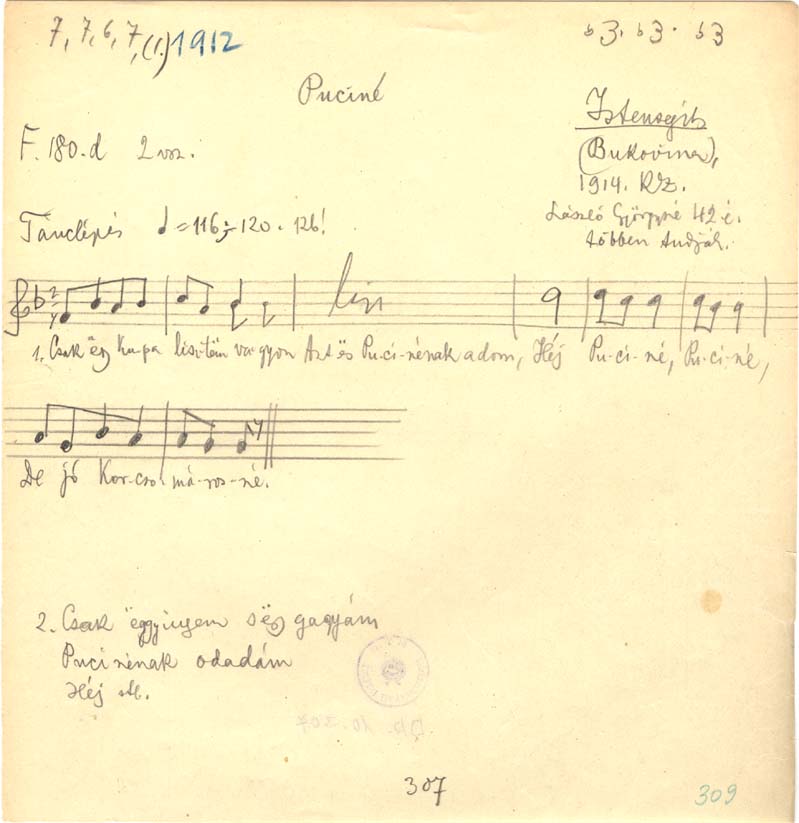 7, 7, 6, 7, (1.) 1912
b3. b3. b3
Puciné
Istensegíts
(Bukovina),
1914. KZ.
F. 180. d 2 vsz.
László Györgyné 42 é.
többen tudják.
Tánclépés ♩=116; -120. 126!
1. Csak ëgy ku-pa lisz-tëm va-gyon Azt ës Pu-ci-nénak adom, Héj Pu-ci-né, Pu-ci-né,
De jó Kor-cso-má-ros-né.
2. Csak ëggy ingem s ëgy gagyám
Pucinénak odadám
Héj stb.
307
309